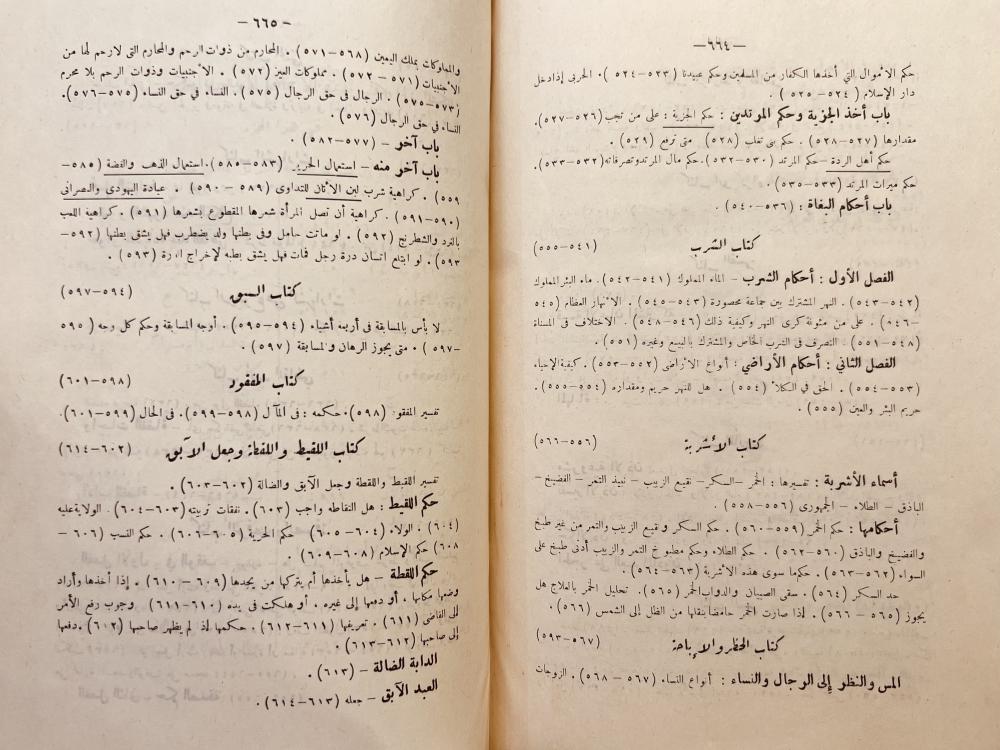 — ٦٦٤ —
حكم الأموال التي أخذها الكفار من المسلمين وحكم عبيدنا (٥٢٣–٥٢٤). الحربى إذا دخل
دار الإسلام (٥٢٤–٥٢٥).
باب أخذ الجزية وحكم المرتدين : حكم الجزية : على من تجب (٥٢٦–٥٢٧).
مقدارها (٥٢٧–٥٢٨). حكم بنى تغلب (٥٢٨) متى ترفع (٥٢٩).
حكم أهل الردة – حكم المرتد (٥٣٠–٥٣٢). حكم مال المرتد وتصرفاته (٥٣٢–٥٣٣).
حكم ميراث المرتد (٥٣٣–٥٣٥).
باب أحكام البغاة : (٥٣٦–٥٤٠).
كتاب الشرب (٥٤١–٥٥٥)
الفصل الأول : أحكام الشرب – الماء المملوك (٥٤١–٥٤٢). ماء البئر المملوك
(٥٤٢–٥٤٣). النهر المشترك بين جماعة محصورة (٥٤٣–٥٤٥). الأنهار العظام (٥٤٥
–٥٤٦). على من مئونة كرى النهر وكيفية ذلك (٥٤٦–٥٤٨). الاختلاف فى المسناة
(٥٤٨–٥٥١). التصرف فى الشرب الخاص والمشترك بالبيع وغيره (٥٥١).
الفصل الثاني : أحكام الأراضي : أنواع الأراضى (٥٥٢–٥٥٣). كيفية الإحياء
(٥٥٣–٥٥٤). الحق في الكلأ (٥٥٤). هل للنهر حريم ومقداره (٥٥٤–٥٥٥).
حريم البئر والعين (٥٥٥).
كتاب الأشربة (٥٥٦–٥٦٦)
أسماء الأشربة : تفسيرها : الخمر – السكر – نقيع الزبيب – نبيذ التمر – الفضيخ –
الباذق – الطلاء – الجمهورى (٥٥٦–٥٥٨).
أحكامها : حكم الخمر (٥٥٩–٥٦٠). حكم السكر ونقيع الزبيب والتمر من غير طبخ
والفضيخ والباذق (٥٦٠–٥٦٢). حكم الطلاء وحكم مطبوخ التمر والزبيب أدنى طبخ على
السواء (٥٦٢–٥٦٣). حكم ما سوى هذه الأشربة (٥٦٣–٥٦٤).
حد السكر (٥٦٤). سقى الصبيان والدواب الخمر (٥٦٥). تحليل الخمر بالعلاج هل
يجوز (٥٦٥–٥٦٦). إذا صارت الخمر حامضا بنقلها من الظل إلى الشمس (٥٦٦).
كتاب الحظر والإباحة (٥٦٧–٥٩٣)
المس والنظر إلى الرجال والنساء : أنواع النساء (٥٦٧–٥٦٨). الزوجات
— ٦٦٥ —
والمملوكات بملك اليمين (٥٦٨–٥٧١). المحارم من ذوات الرحم والمحارم التى لا رحم لها من
الأجنبيات (٥٧١–٥٧٢). مملوكات الغير (٥٧٢). الأجنبيات وذوات الرحم بلا محرم
(٥٧٣–٥٧٥). الرجال فى حق الرجال (٥٧٥). النساء في حق النساء (٥٧٥–٥٧٦).
النساء في حق الرجال (٥٧٦).
باب آخر – (٥٧٧–٥٨٢).
باب آخر منه – استعمال الحرير (٥٨٣–٥٨٥). استعمال الذهب والفضة (٥٨٥–
٥٥٩). كراهية شرب لبن الأتان للتداوى (٥٨٩–٥٩٠). عيادة اليهودى والنصرانى
(٥٩٠–٥٩١). كراهية أن تصل المرأة شعرها المقطوع بشعرها (٥٩١). كراهية اللعب
بالنرد والشطرنج (٥٩٢). لو ماتت حامل وفى بطنها ولد يضطرب فهل يشق بطنها (٥٩٢–
٥٩٣). لو ابتلع انسان درة رجل فمات فهل يشق بطنه لإخراج الدرة (٥٩٣).
كتاب السبق (٥٩٤–٥٩٧)
لا بأس بالمسابقة فى أربعة أشياء (٥٩٤–٥٩٥). أوجه المسابقة وحكم كل وجه (٥٩٥
–٥٩٧). متى يجوز الرهان والمسابقة (٥٩٧).
كتاب المفقود (٥٩٨–٦٠١)
تفسير المفقود (٥٩٨). حكمه : فى المآل (٥٩٨–٥٩٩). فى الحال (٥٩٩–٦٠١).
كتاب اللقيط واللقطة وجعل الآبق (٦٠٢–٦١٤)
تفسير اللقيط واللقطة وجعل الآبق والضالة (٦٠٢–٦٠٣).
حكم اللقيط : هل التقاطه واجب (٦٠٣). نفقات تربيته (٦٠٣–٦٠٤). الولاية عليه
(٦٠٤). الولاء (٦٠٤–٦٠٥) حكم الحرية (٦٠٥–٦٠٦). حكم النسب (٦٠٦–
٦٠٨) حكم الإسلام (٦٠٨–٦٠٩).
حكم اللقطة – هل يأخذها أم يتركها من يجدها (٦٠٩–٦١٠). إذا أخذها وأراد
وضعها مكانها، أو دفعها إلى غيره، أو هلكت فى يده (٦١٠–٦١١) وجوب رفع الأمر
إلى القاضى (٦١١). تعريفها (٦١١–٦١٢). حكمها إذا لم يظهر صاحبها (٦١٢). دفعها
إلى صاحبها (٦١٢–٦١٣).
الدابة الضالة – (٦١٣).
العبد الآبق – جعله (٦١٣–٦١٤).